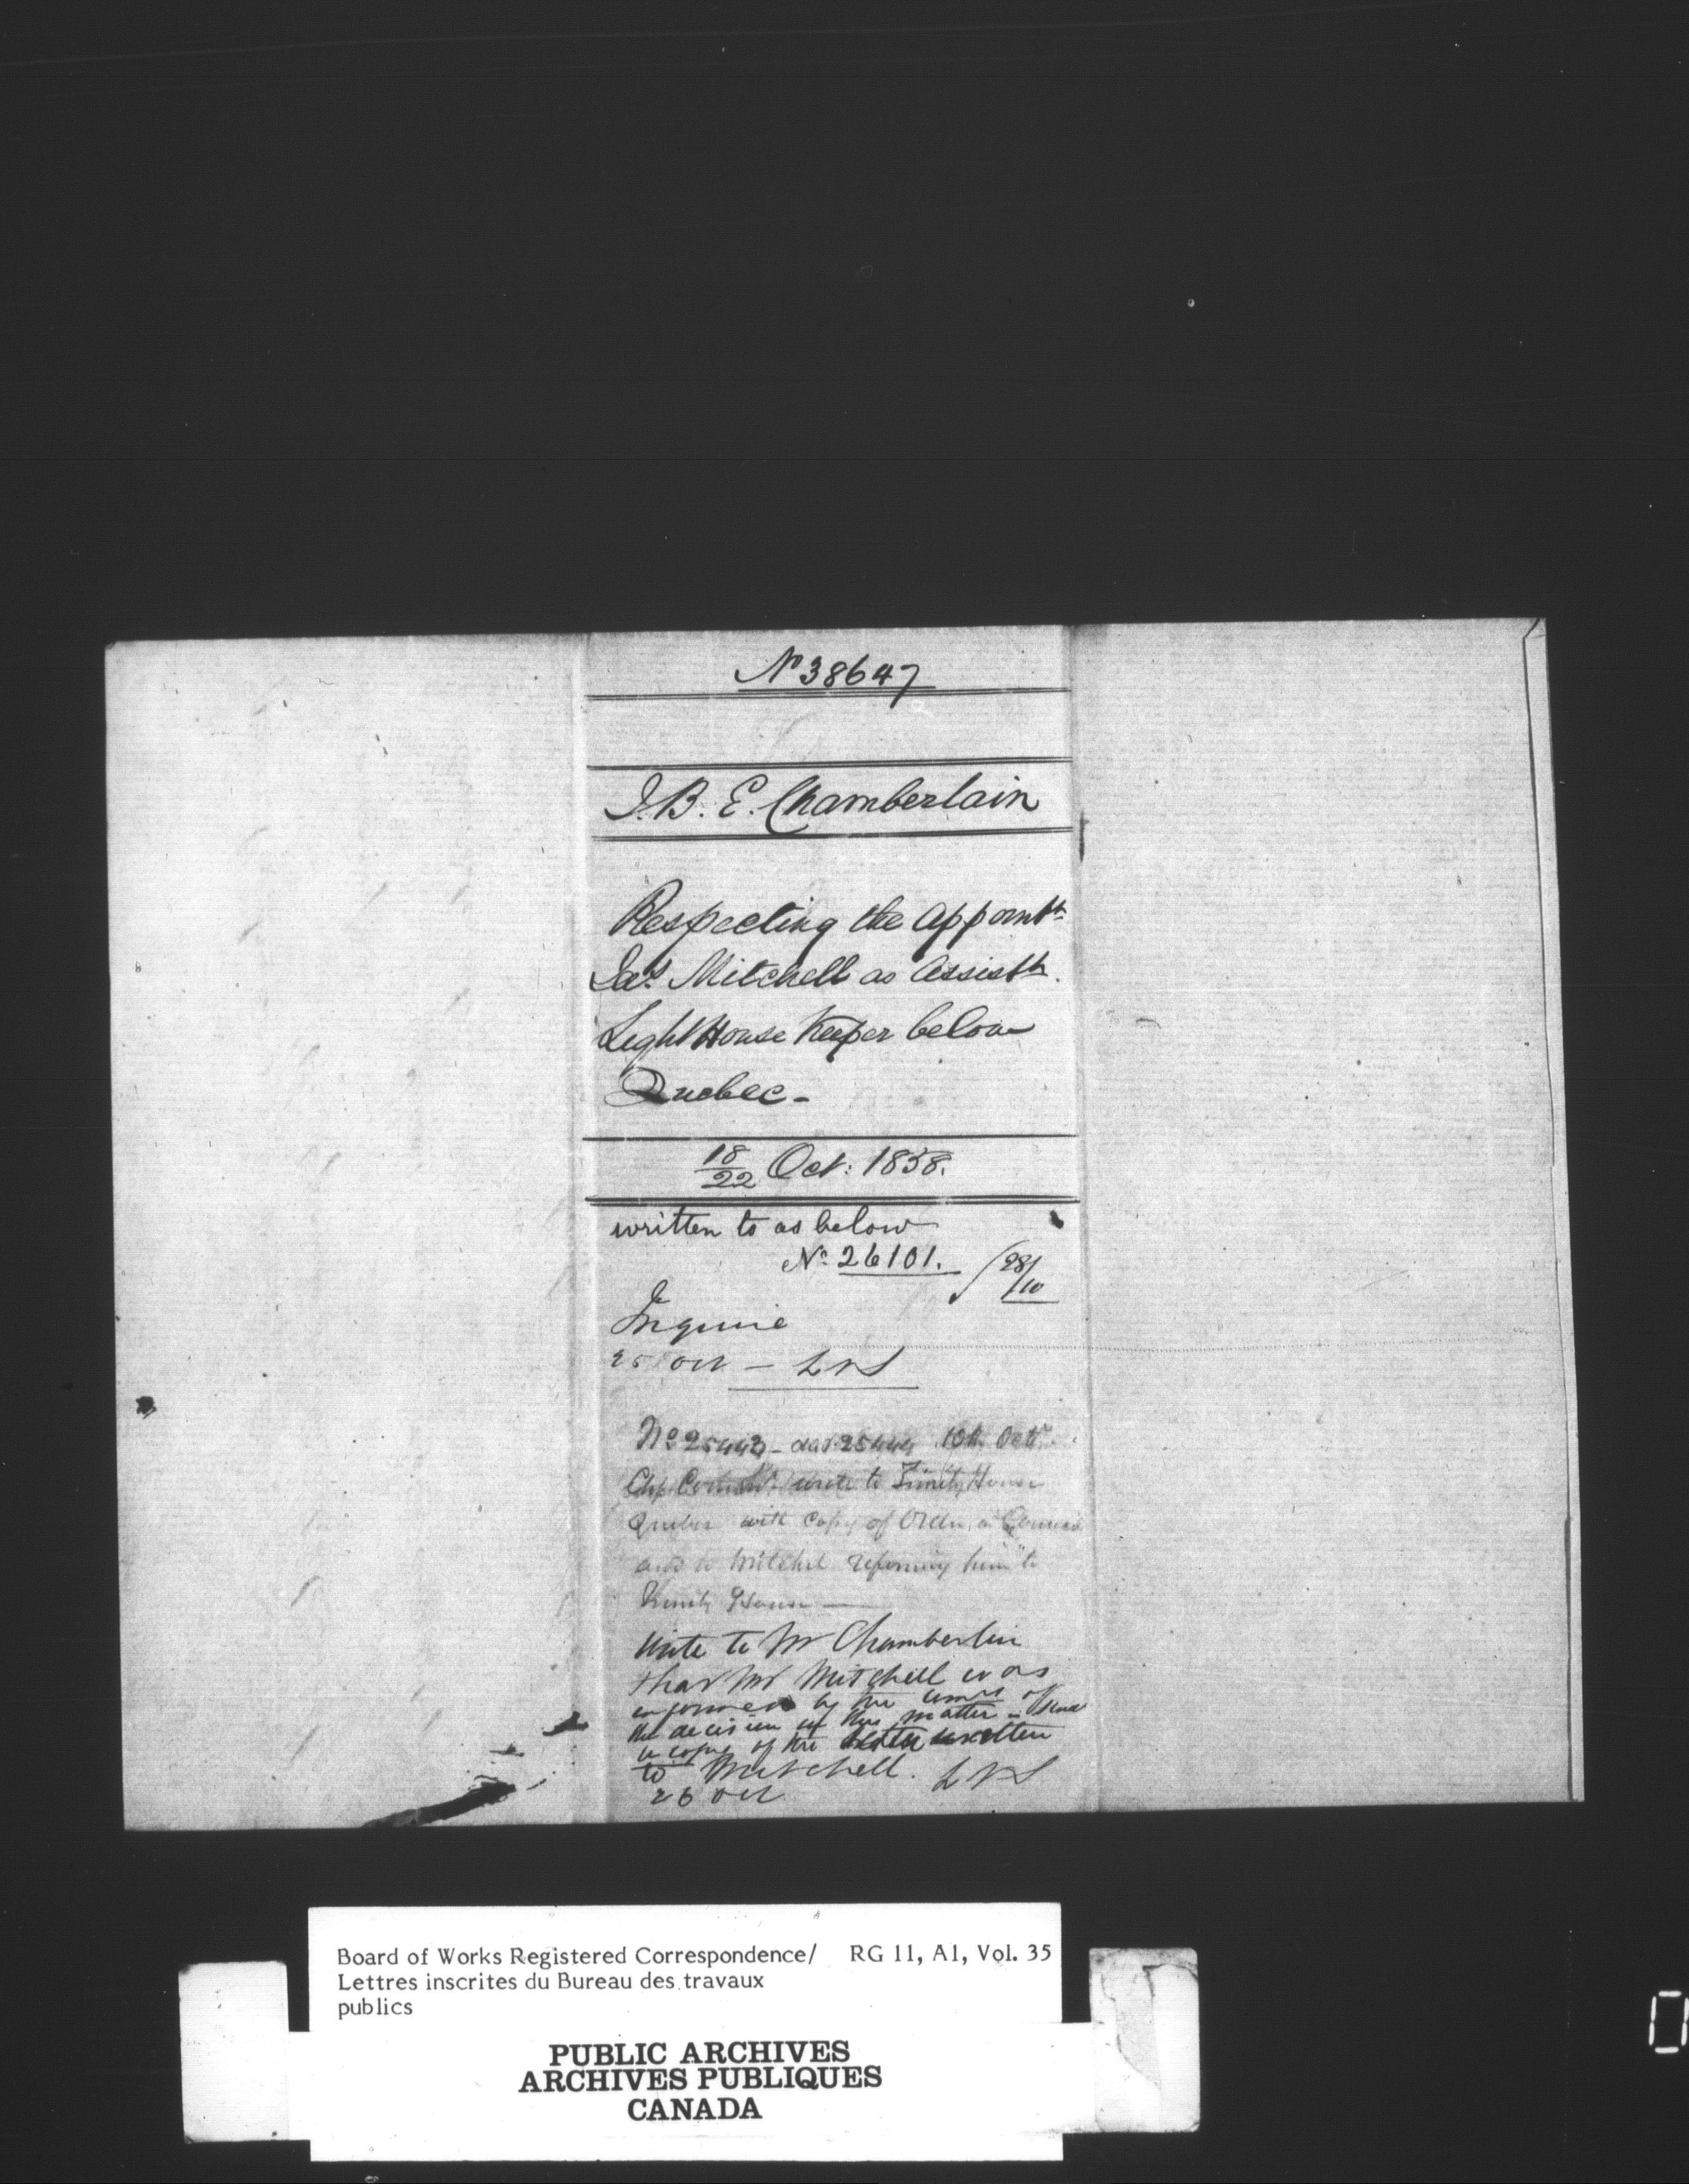 No 38647
J. B. E. Chamberlain
Respecting the appointt
Jas. Mitchell as Assistt.
Light House Keeper below
Quebec -
18/22 Oct: 1858.
written to as below
No. 26101. 28/10
Inquire
25 Oct -
No 25443 - 25444 10th Octr.
wrote to Trinity House
Quebec with copy of Order in Council
and to Mitchel referring him to
Trinity House —
Write to Mr Chamberlin
that Mr Mitchell was
informed by the of
the decision in this matter - Send
a copy of the written
to Mitchell.
26 Oct
Board of Works Registered Correspondence/ RG 11, A1, Vol. 35
Lettres inscrites du Bureau des travaux
publics
PUBLIC ARCHIVES
ARCHIVES PUBLIQUES
CANADA